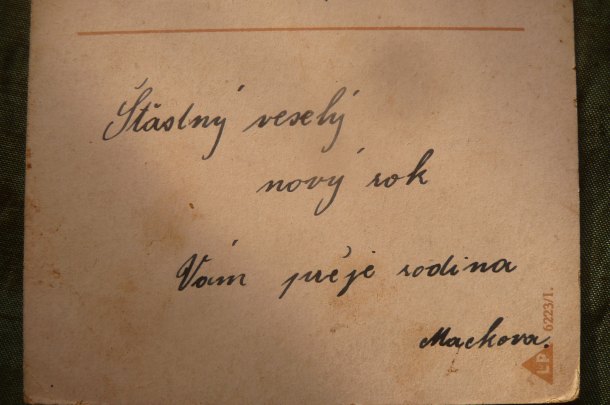 Šťastný veselý
nový rok
Vám přeje rodina
Mackova.
LP 6223/1.